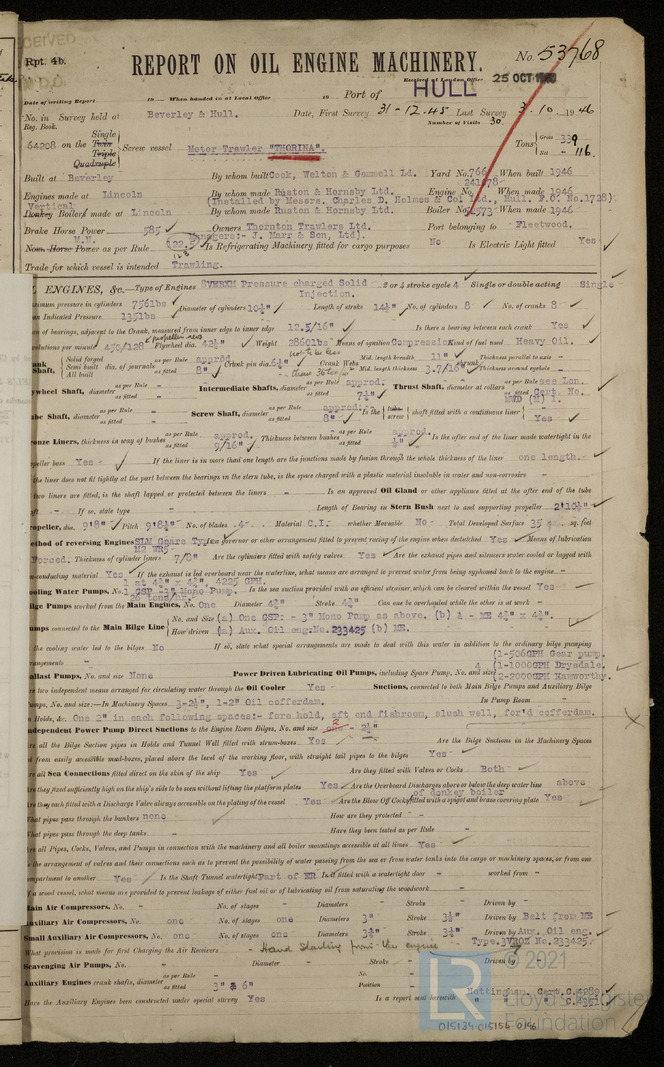 RECEIVED
Rpt. 4b.
REPORT ON OIL ENGINE MACHINERY.
No. 53768
Received at London Office 25 OCT
Date of writing Report 19 — When handed in at Local Office 19 Port of HULL
No. in Survey held at Beverley & Hull. Date, First Survey 31-12-45 Last Survey 3.10.1946
Reg. Book. Number of Visits 30
64208 on the Single Twin Triple Quadruple Screw vessel Motor Trawler "THORINA". Tons Gross 339 Net 116.
Built at Beverley By whom built Cook, Welton & Gemmell Ld. Yard No. 766 When built 1946
Engines made at Lincoln By whom made Ruston & Hornsby Ltd. Engine No. 241878 When made 1946
(Installed by Messrs. Charles D. Holmes & Co. Ltd., Hull. F.O. No.1728)
Vertical
Donkey Boilers made at Lincoln By whom made Ruston & Hornsby Ltd. Boiler No. When made 1946
Brake Horse Power 585 Owners Thornton Trawlers Ltd. Port belonging to Fleetwood.
Managers:- J. Marr & Son, Ltd).
M.N.
Nom. Horse Power as per Rule Is Refrigerating Machinery fitted for cargo purposes No Is Electric Light fitted Yes
Trade for which vessel is intended Trawling.
ENGINES, &c.—Type of Engines Pressure charged Solid Injection. 2 or 4 stroke cycle 4 Single or double acting Single
pressure in cylinders 756lbs Diameter of cylinders 10¾" Length of stroke 14½" No. of cylinders 8 No. of cranks 8
Indicated Pressure 135lbs
of bearings, adjacent to the Crank, measured from inner edge to inner edge 12.5/16" Is there a bearing between each crank Yes
per minute 450/128 Flywheel dia. 42½" Weight 2860lbs Means of ignition Compression Kind of fuel used Heavy Oil.
Shaft, Solid forged Semi built All built dia. of journals as per Rule approd as fitted 8" Crank pin dia. Crank Webs Mid. length breadth 11" Mid. length thickness 3.7/16" Thickness parallel to axis - Thickness around eyehole -
Shaft, diameter as per Rule - as fitted - Intermediate Shafts, diameter as per Rule approd. as fitted Thrust Shaft, diameter at collars as per Rule see Lon. as fitted Cert. No.
Shaft, diameter as per Rule - as fitted - Screw Shaft, diameter as per Rule approd. as fitted 8" Is the tube screw shaft fitted with a continuous liner Yes
Liners, thickness in way of bushes as per Rule approd. as fitted 9/16" Thickness between bushes as per Rule approd. as fitted Is the after end of the liner made watertight in the
propeller boss Yes If the liner is in more than one length are the junctions made by fusion through the whole thickness of the liner one length.
the liner does not fit tightly at the part between the bearings in the stern tube, is the space charged with a plastic material insoluble in water and non-corrosive -
two liners are fitted, is the shaft lapped or protected between the liners - Is an approved Oil Gland or other appliance fitted at the after end of the tube
- If so, state type - Length of Bearing in Stern Bush next to and supporting propeller 2'10½"
dia. 9'8" Pitch 9'8½" No. of blades 4 Material C.I. whether Moveable No Total Developed Surface 35 sq. feet
Method of reversing Engines SLM Gears Type Is a governor or other arrangement fitted to prevent racing of the engine when declutched Yes Means of lubrication
Forced. Thickness of cylinder liners 7/8" Are the cylinders fitted with safety valves Yes Are the exhaust pipes and silencers water cooled or lagged with
non-conducting material Yes If the exhaust is led overboard near the waterline, what means are provided to prevent water from being syphoned back to the engine
1 at 4¾" x 4¾", 4225 GPH.
Cooling Water Pumps, No. Is the sea suction provided with an efficient strainer, which can be cleared within the vessel Yes
Bilge Pumps worked from the Main Engines, No. One Diameter 4¾" Stroke 4¾" Can one be overhauled while the other is at work -
connected to the Main Bilge Line No. and Size (a) One GSP: - 3" Mono Pump as above. (b) 1 - ME 4¾" x 4¾".
How driven (a) Aux. Oil eng. No. 233425 (b) ME.
the cooling water led to the bilges No If so, state what special arrangements are made to deal with this water in addition to the ordinary bilge pumping
arrangements - (1-506GPH Gear pump.
Ballast Pumps, No. and size None Power Driven Lubricating Oil Pumps, including Spare Pump, No. and size 4 (1-1000GPH Drysdale, (2-2000GPH Hamworthy.
two independent means arranged for circulating water through the Oil Cooler Yes Suctions, connected to both Main Bilge Pumps and Auxiliary Bilge
Pumps, No. and size:—In Machinery Spaces 3-2½", 1-2" Oil cofferdam. In Pump Room -
Holds, &c. One 2" in each following spaces:- fore hold, aft end fishroom, slush well, for'd cofferdam.
Independent Power Pump Direct Suctions to the Engine Room Bilges, No. and size
all the Bilge Suction pipes in Holds and Tunnel Well fitted with strum-boxes Yes Are the Bilge Suctions in the Machinery Spaces
from easily accessible mud-boxes, placed above the level of the working floor, with straight tail pipes to the bilges Yes
all Sea Connections fitted direct on the skin of the ship Yes Are they fitted with Valves or Cocks Both
they fixed sufficiently high on the ship's side to be seen without lifting the platform plates Yes Are the Overboard Discharges above or below the deep water line above
they each fitted with a Discharge Valve always accessible on the plating of the vessel Yes Are the Blow Off Cocks of donkey boiler fitted with a spigot and brass covering plate Yes
What pipes pass through the bunkers none How are they protected -
What pipes pass through the deep tanks - Have they been tested as per Rule -
all Pipes, Cocks, Valves, and Pumps in connection with the machinery and all boiler mountings accessible at all times Yes
the arrangement of valves and their connections such as to prevent the possibility of water passing from the sea or from water tanks into the cargo or machinery spaces, or from one
compartment to another Yes Is the Shaft Tunnel watertight Part of ER Is it fitted with a watertight door - worked from -
a wood vessel, what means are provided to prevent leakage of either fuel oil or of lubricating oil from saturating the woodwork -
Main Air Compressors, No. - No. of stages - Diameters - Stroke - Driven by -
Auxiliary Air Compressors, No. one No. of stages one Diameters 3" Stroke 3½" Driven by Belt from ME
Small Auxiliary Air Compressors, No. one No. of stages one Diameters Stroke Driven by Aux. Oil eng.
Type.3VROZ No.233425.
What provision is made for first Charging the Air Receivers - Hand Starting from the engine
Scavenging Air Pumps, No. - Diameter - Stroke - Driven by -
Auxiliary Engines crank shafts, diameter as per Rule as fitted 3" & 6" No. Position
Nottingham. Cert.
Have the Auxiliary Engines been constructed under special survey Yes Is a report sent herewith
© 2021
LR
Lloyd's Register
Foundation
015139-015156-0196